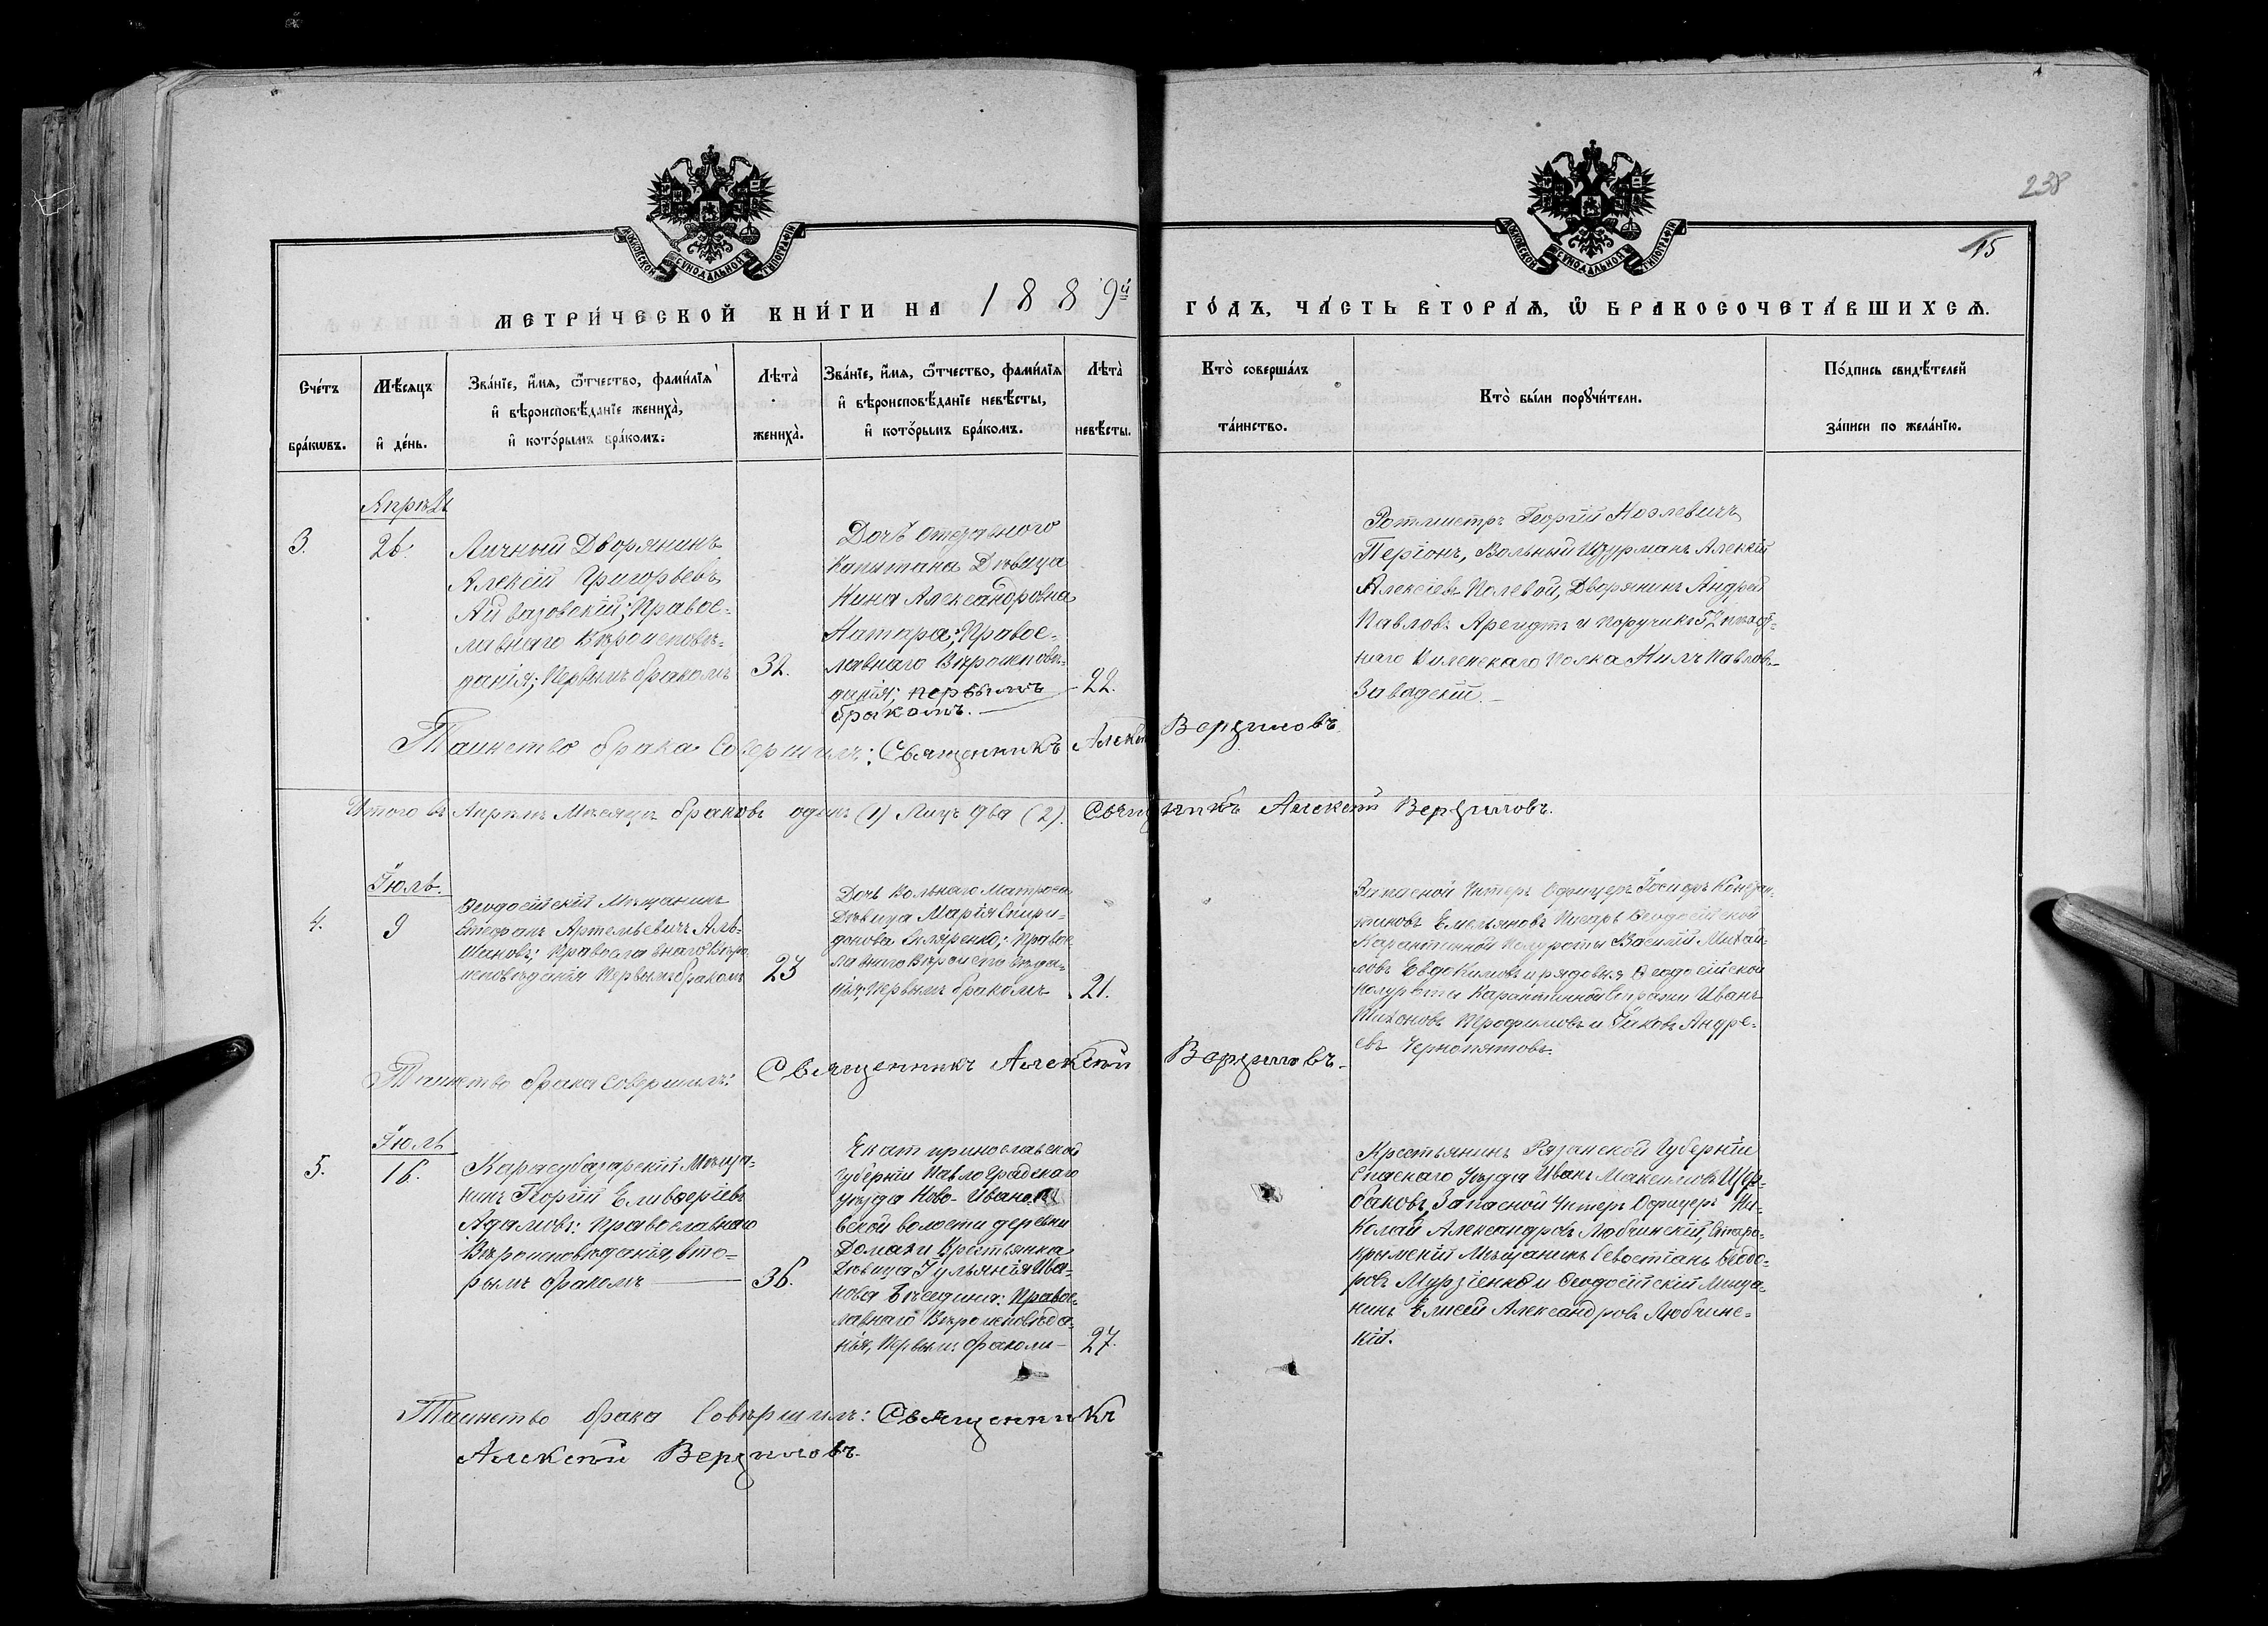 238
15
МОСКОВСКОЙ СѴНОДАЛЬНОЙ ТИПОГРАФІИ
МОСКОВСКОЙ СѴНОДАЛЬНОЙ ТИПОГРАФІИ
МЕТРИ́ЧЕСКОЙ КНИ́ГИ НА 1889й ГО́ДЪ, ЧА́СТЬ ВТОРА́Ѧ, Ѿ БРАКОСОЧЕТА́ВШИХСѦ.
Сче́тъ бра́кѡвъ.
Мѣ́сѧцъ и҆ де́нь.
Зва́нїе, и҆́мѧ, ѻ҆́тчество, фами́лїѧ
и҆ вѣроисповѣ́данїе жениха̀,
и҆ кото́рымъ бра́комъ.
Лѣта̀ жениха̀.
Зва́нїе, и҆́мѧ, ѻ҆́тчество, фами́лїѧ
и҆ вѣроисповѣ́данїе невѣ́сты,
и҆ кото́рымъ бра́комъ.
Лѣта̀ невѣ́сты.
Кто̀ соверша́лъ та́инство.
Кто̀ бы́ли порꙋчи́тели.
По́дпись свидѣ́телей за́писи по жела́нїю.
3.
Апрѣль
26.
Личный Дворянинъ
Алексій Григорьевъ
Айвазовскій; Правос-
лавнаго Вѣроисповѣ-
данія; Первымъ бракомъ
32.
Дочь отставного
Капитана Дѣвица
Нина Александровна
Натара; Правос-
лавнаго Вѣроисповѣ-
данія; первымъ
бракомъ.
22.
Ротмистръ Георгій
Вольный Штурманъ Алексій
Алексіевъ Полевой, Дворянинъ Андрей
Павловъ Арендтъ и Поручикъ
Виленскаго Полка Нилъ Павловъ
Завадскій.
Таинство брака Совершилъ: Священникъ Алексій Верзиловъ
Итого въ Апрѣлѣ Мѣсяцѣ браковъ одинъ (1) Лицъ два (2). Священникъ Алексій Верзиловъ.
4.
Іюль.
9
Ѳеодосійскій Мѣщанинъ
Стефанъ Артемьевичъ Аль-
шановъ; Православнаго Вѣро-
исповѣданія Первымъ бракомъ
23
Дочь Вольнаго Матроса
Дѣвица Марія Спири-
донова Скляренко; Правос-
лавнаго Вѣроисповѣда-
нія; Первымъ бракомъ
21.
Запасной Унтеръ Офицеръ Іосифъ Констан-
тиновъ Емельяновъ Писарь Ѳеодосійской
Карантинной Полуроты Василій Михай-
ловъ Евдокимовъ и рядовыя Ѳеодосійской
полуроты Карантинной Стражи Иванъ
Тихоновъ Трофимовъ и Іаковъ Андре-
евъ Чернопятовъ.
Таинство брака Совершилъ: Священникъ Алексій Верзиловъ.
5.
Іюль
16.
Карасубазарскій Мѣща-
нинъ Георгій Елевферіевъ
Адамовъ: Православнаго
Вѣроисповѣданія, вто-
рымъ бракомъ
36.
Екатеринославской
губерніи Павлоградскаго
уѣзда Ново-Иванов-
ской волости деревни
Домахи Крестьянка
Дѣвица Іульянія Ива-
нова Бѣседина: Правос-
лавнаго Вѣроисповѣда-
нія, Первымъ бракомъ
27.
Крестьянинъ Рязанской Губерніи
Спаскаго Уѣзда Иванъ Максимовъ Щер-
баковъ, Запасной Унтеръ Офицеръ Ни-
колай Александровъ Любчинскій, Старо-
крымскій Мѣщанинъ Севостіанъ Ѳеодо-
ровъ Мурзіенко и Ѳеодосійскій Мѣща-
нинъ Елисей Александровъ Любчинс-
кій.
Таинство брака Совершилъ: Священникъ
Алексій Верзиловъ.